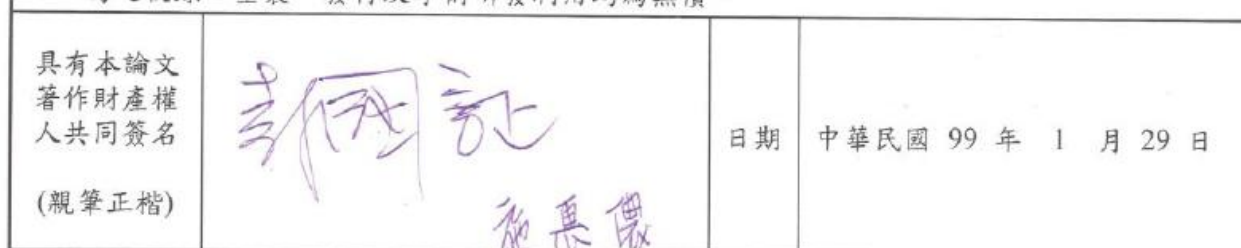 具有本論文
著作財產權
人共同簽名
(親筆正楷)
彭國証
日期
中華民國 99 年 1 月 29 日